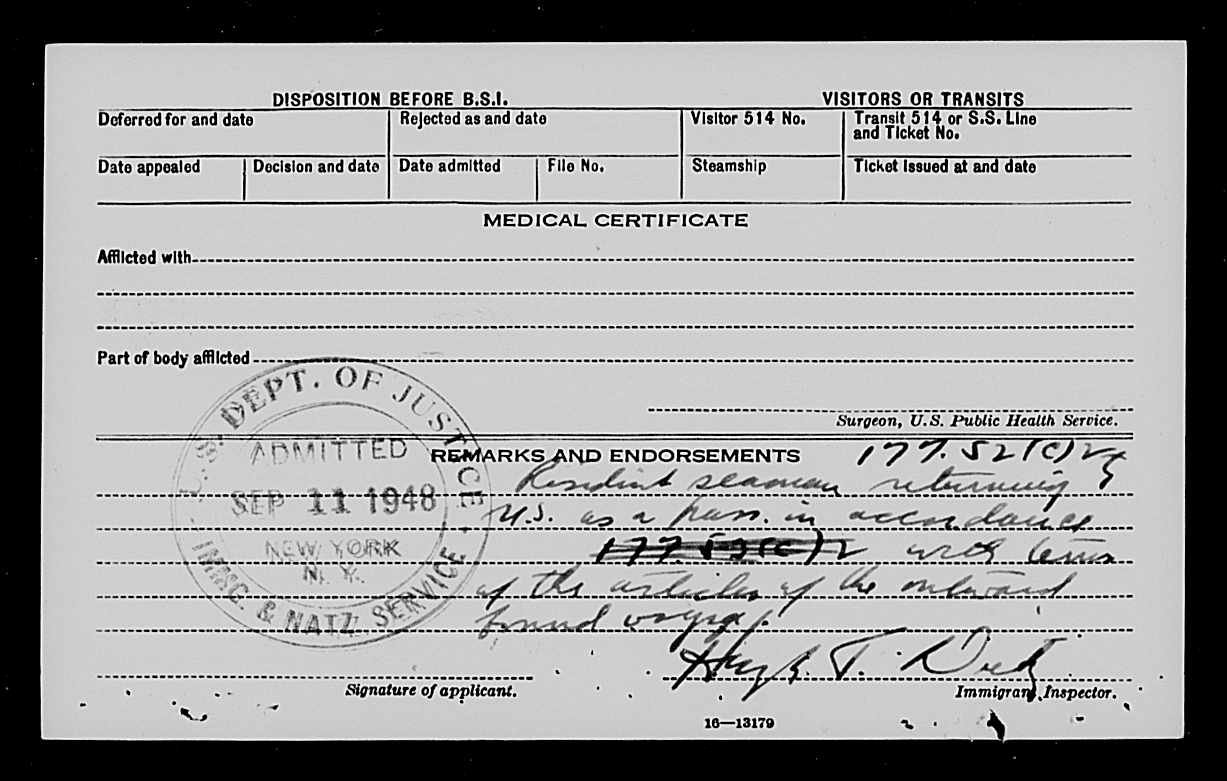 DISPOSITION BEFORE B.S.I.
VISITORS OR TRANSITS
Deferred for and date
Rejected as and date
Visitor 514 No.
Transit 514 or S.S. Line
and Ticket No.
Date appealed
Decision and date
Date admitted
File No.
Steamship
Ticket issued at and date
MEDICAL CERTIFICATE
Afflicted with
Part of body afflicted
Surgeon, U.S. Public Health Service.
U.S. DEPT. OF JUSTICE
ADMITTED
SEP 11 1948
NEW YORK
N. Y.
IMMG. & NATZ. SERVICE
REMARKS AND ENDORSEMENTS
177.52(c)2
Resident seaman returning
U.S. as a pass. in accordance
with terms
of the articles of the outward
bound voyage.
Hugh T.
Signature of applicant.
Immigrant Inspector.
16—13179